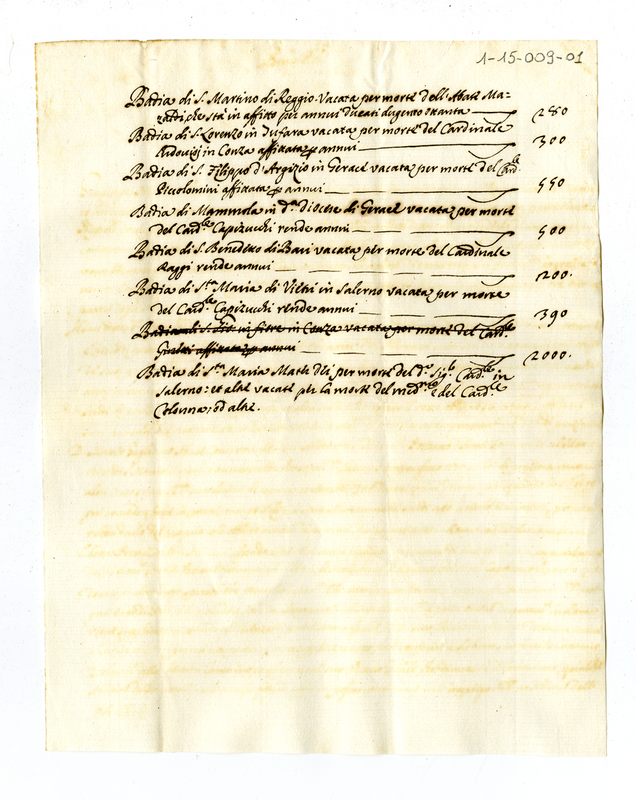 1-15-009-01
Badia di S. Martino di Reggio vacata per morte dell'Abate Ma-
zatti, che sta in affitto per annui Ducati dugento ottanta — 280
Badia di S. Lorenzo in Dufara vacata per morte del Cardinale
Ludovisj in Conza affittata p annui — 300
Badia di S. Filippo d'Argizio in Gerace vacata per morte del Card.le
Piccolomini affittata p annui — 550
Badia di Mammola in d.a Diocese di Gerace vacata per morte
del Card.le Capizucchi rende annui — 500
Badia di S. Benedetto di Bari vacata per morte del Cardinale
Raggi rende annui — 200.
Badia di S.ta Maria di Vietri in Salerno vacata per morte
del Card.le Capizucchi rende annui — 390
Badia di S. in fiere in Conza vacata per morte del Card.le
affittata p annui — 2000.
Badia di S.ta Maria Mater Dei per morte del d.o Sig.r Card.le in
Salerno: et altre vacate per la morte del med.mo e del Card.le
Colonna, od altre.